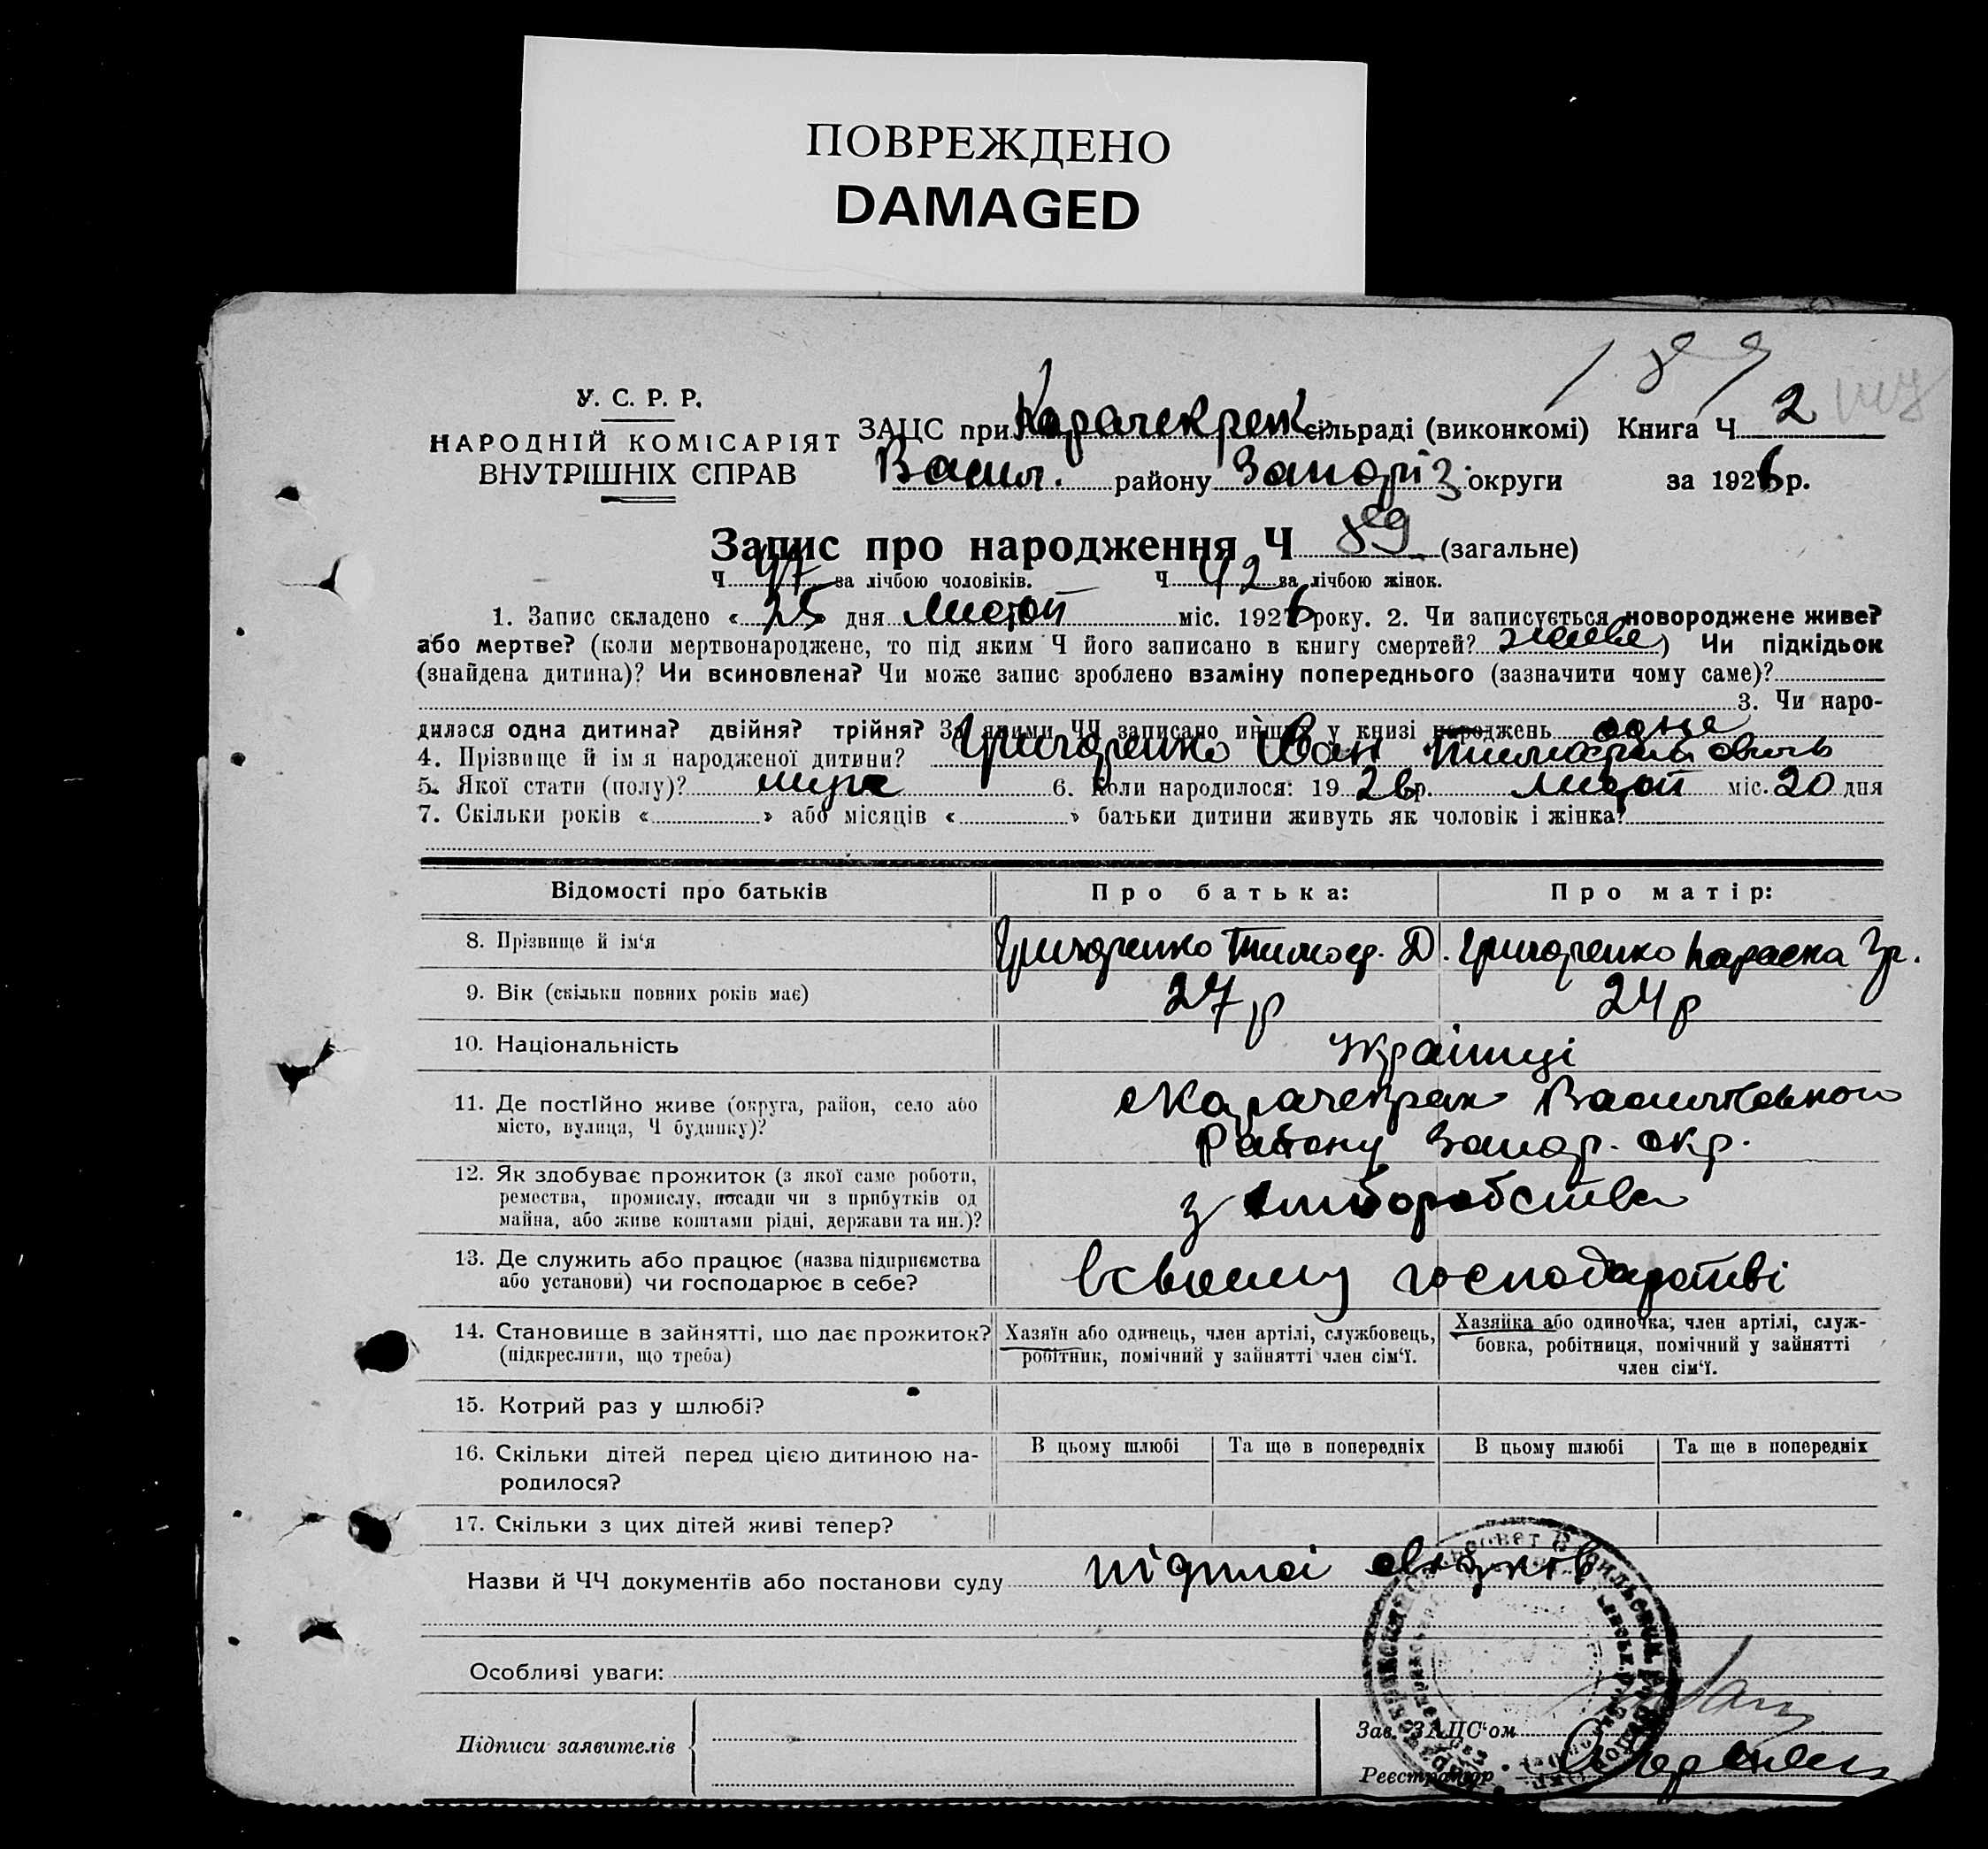 ПОВРЕЖДЕНО
DAMAGED
189
У. С. Р. Р.
НАРОДНІЙ КОМІСАРІЯТ
ВНУТРІШНІХ СПРАВ
ЗАЦС при Карачекрак сільраді (виконкомі) Книга Ч 2
Васил. району Запоріз. округи за 1926 р.
Запис про народження Ч 89 (загальне)
Ч 47 за лічбою чоловіків. Ч 42 за лічбою жінок.
1. Запис складено « 25 » дня Лютой міс. 1926 року. 2. Чи записується новороджене живе?
або мертве? (коли мертвонароджене, то під яким Ч його записано в книгу смертей? живе) Чи підкідьок
(знайдена дитина)? Чи всиновлена? Чи може запис зроблено взаміну попереднього (зазначити чому саме)?
3. Чи наро-
дилася одна дитина? двійня? трійня? За якими ЧЧ записано инших у книзі народжень одне
4. Прізвище й ім я народженої дитини? Григоренко Іван Тимофійович
5. Якої стати (полу)? муж 6. Коли народилося: 1926 р. Лютой міс. 20 дня
7. Скільки років « » або місяців « » батьки дитини живуть як чоловік і жінка?
Відомості про батьків
Про батька:
Про матір:
8. Прізвище й ім‘я Григоренко Тимоф. Д. Григоренко Параска Гр.
9. Вік (скільки повних років має) 27 р 24 р
10. Національність Українці
11. Де постійно живе (округа, район, село або
місто, вулиця, Ч будинку)?
Карачекрак Василівського
Району Запор. окр.
12. Як здобуває прожиток (з якої саме роботи,
ремества, промислу, посади чи з прибутків од
майна, або живе коштами рідні, держави та ин.)?
з хліборобства
13. Де служить або працює (назва підприємства
або установи) чи господарює в себе?
в своєму господарстві
14. Становище в зайнятті, що дає прожиток?
(підкреслити, що треба)
Хазяїн або одинець, член артілі, службовець,
робітник, помічний у зайнятті член сім‘ї.
Хазяйка або одиночка, член артілі, служ-
бовка, робітниця, помічний у зайнятті
член сім‘ї.
15. Котрий раз у шлюбі?
16. Скільки дітей перед цією дитиною на-
родилося?
В цьому шлюбі Та ще в попередніх В цьому шлюбі Та ще в попередніх
17. Скільки з цих дітей живі тепер?
Назви й ЧЧ документів або постанови суду
Особливі уваги:
Підписи заявителів
Зав. ЗАЦС‘ом
Реєстратор